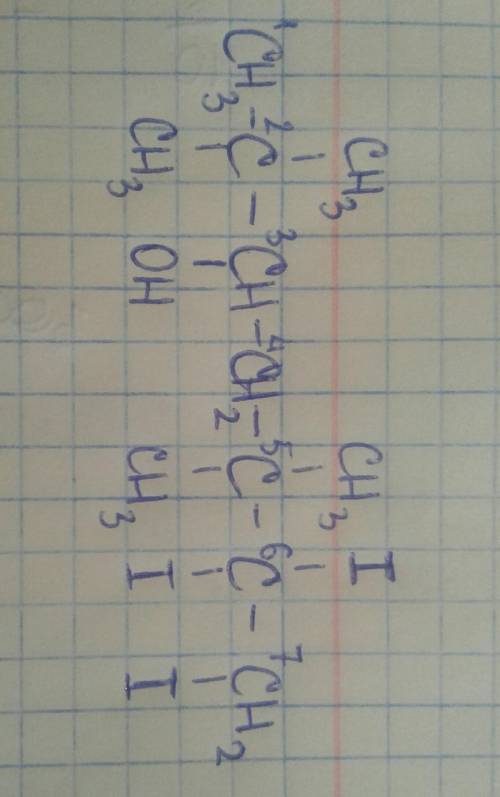 CH₃ CH₃ I
¹CH₃ – ²C – ³CH – ⁴CH₂ – ⁵C – ⁶C – ⁷CH₂
CH₃ OH CH₃ I I